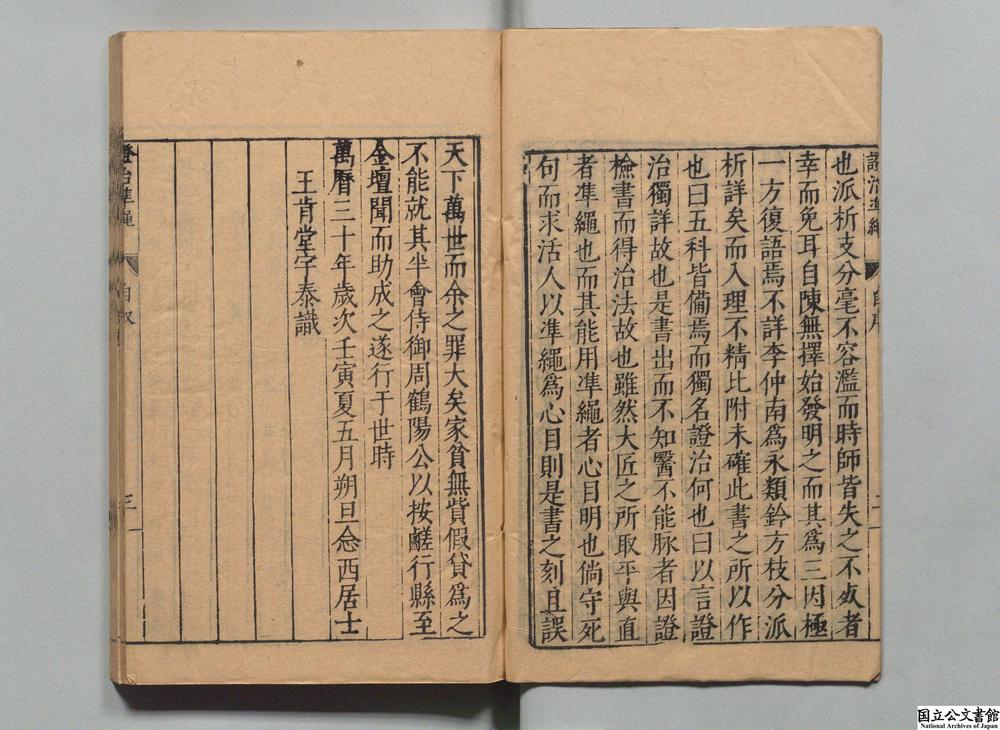 證治準繩 自序 二
也派析支分毫不容濫而時師皆失之不死者
幸而免耳自陳無擇始發明之而其爲三因極
一方復語焉不詳李仲南爲永類鈐方枝分派
析詳矣而入理不精比附未確此書之所以作
也曰五科皆備焉而獨名證治何也曰以言證
治獨詳故也是書出而不知醫不能脉者因證
檢書而得治法故也雖然大匠之所取平與直
者準繩也而其能用準繩者心目明也倘守死
句而求活人以準繩爲心目則是書之刻且誤
天下萬世而余之罪大矣家貧無貲假貸爲之
不能就其半會侍御周鶴陽公以按鹺行縣至
金壇聞而助成之遂行于世時
萬曆三十年歲次壬寅夏五月朔旦念西居士
王肯堂宇泰識
證治準繩 自叙 三
国立公文書館
National Archives of Japan